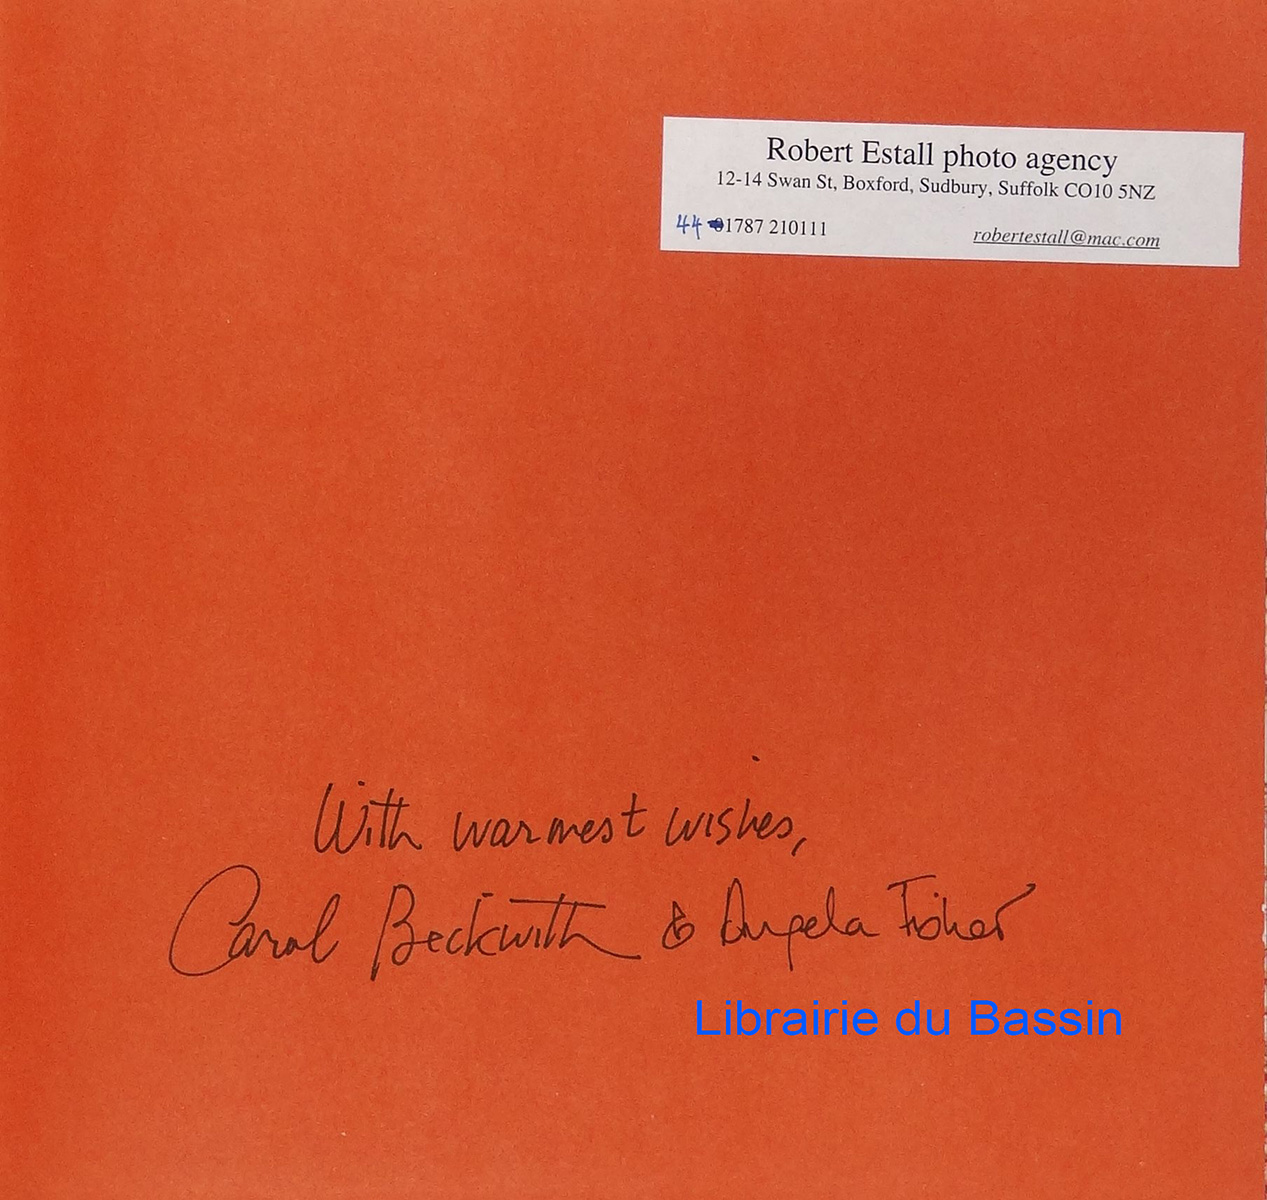 Robert Estall photo agency
12-14 Swan St, Boxford, Sudbury, Suffolk CO10 5NZ
44 01787 210111 robertestall@mac.com
With warmest wishes,
Carol Beckwith & Angela Fisher
Librairie du Bassin